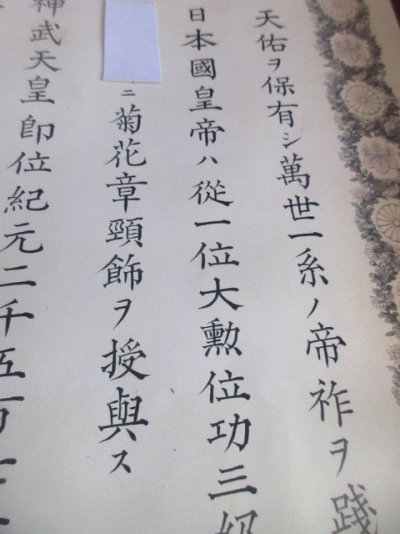 天佑ヲ保有シ萬世一系ノ帝祚ヲ踐
日本國皇帝ハ從一位大勳位功三級
ニ菊花章頸飾ヲ授與ス
神武天皇卽位紀元二千五百